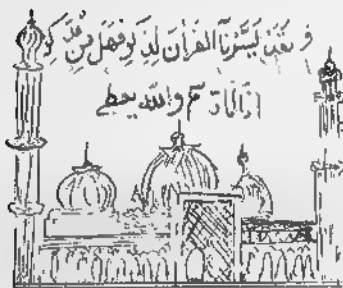 و لقد يسرنا القرآن لذكر فهل من مدكر
والله يعطي